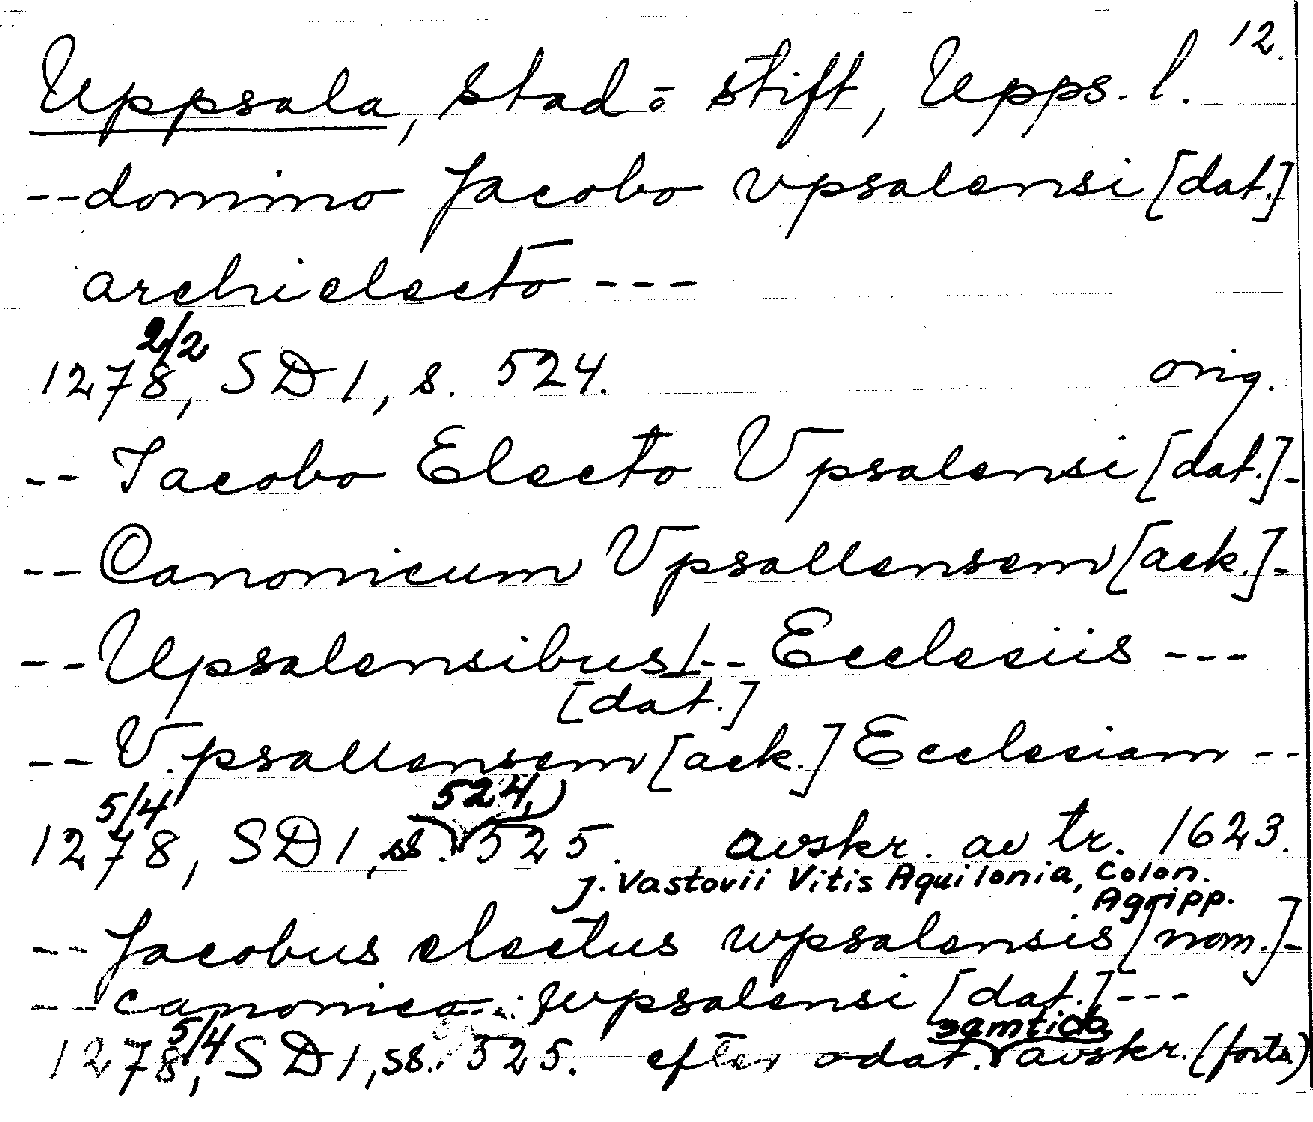 12.
Uppsala, stad o stift, Upps. l.
--domino Jacobo vpsalensi [dat.]
archielecto ---
1278 2/2, SD 1, s. 524. orig.
-- Iacobo Electo Vpsalensi [dat.]-
-- Canonicum Vpsallensem [ack.]-
--Upsalensibus/-- Ecclesiis ---
[dat.]
-- Vpsallensem [ack.] Ecclesiam --
1278 5/4, SD 1, s. 524, 525. avskr. av tr. 1623.
J. Vastovii Vitis Aquilonia, Colon.
Agripp.
--Jacobus electus wpsalensis [nom.]-
--canonico-- wpsalensi [dat.]---
1278 5/4, SD 1, ss. 525. efter odat. samtida avskr. (forts)